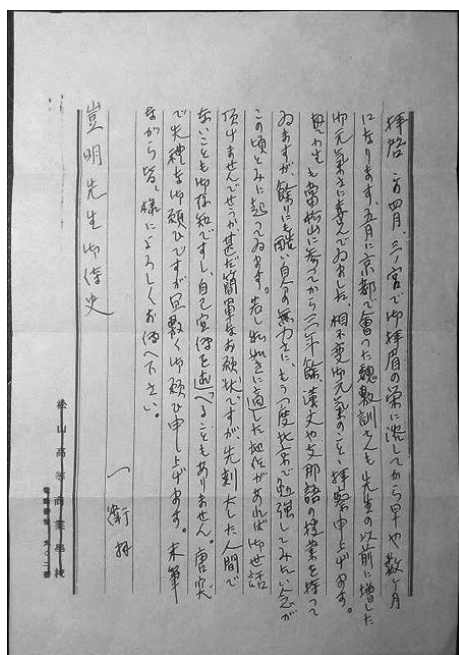 拝啓 去四月、三ノ宮で御拝眉の栄に浴してから早や数ヶ月
になります。五月に京都で會った魏敷訓さんも先生の以前に増した
御元気さに喜んでゐました。相不変御元気のこと、拝察申上げます。
私も當松山に参ってから三年餘、漢文や支那語の授業を持って
ゐますが、餘りにも酷い自分の無力さに、もう一度北京で勉強してみたい念が
この頃とみに起ってゐます。若し私如きに適した地位があれば御世話
頂けませんでせうか。甚だ簡單なお願状ですが、先刻大した人間で
ないことも御存知ですし、自己宣傳を述べることもありません。唐突
で失禮な御願ひですが宜敷く御願ひ申し上げます。末筆
ながら皆々様によろしくお傳へ下さい。
一衛拝
豈明先生御侍史
松山高等商業學校
電話番号 九〇二番